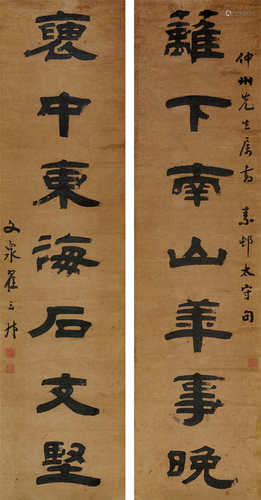 仲州先生屬書 素邨太守句
籬下南山華事晚
褎中東海石文堅
文泉翟云升